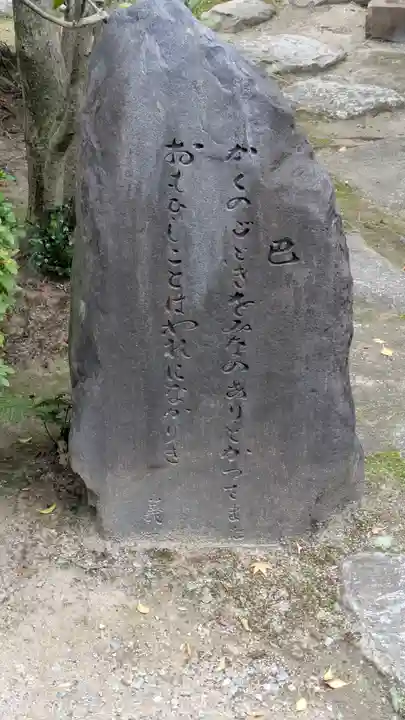 巴
かくのごときをみなのありとかつてまた
おもひしことはわれになかりき
義